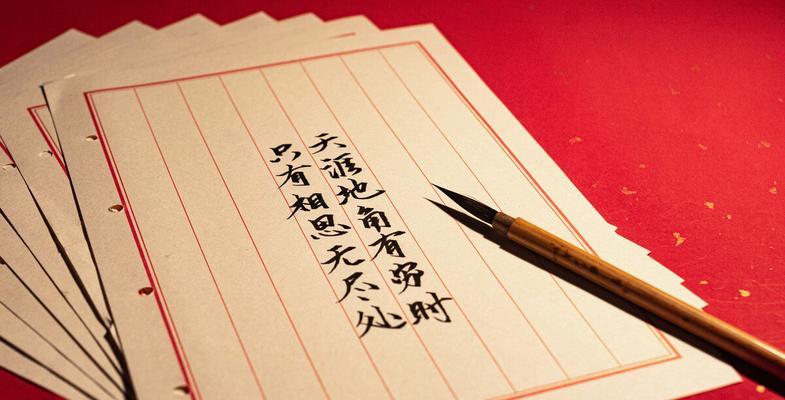 天涯地角有穷时
只有相思无尽处